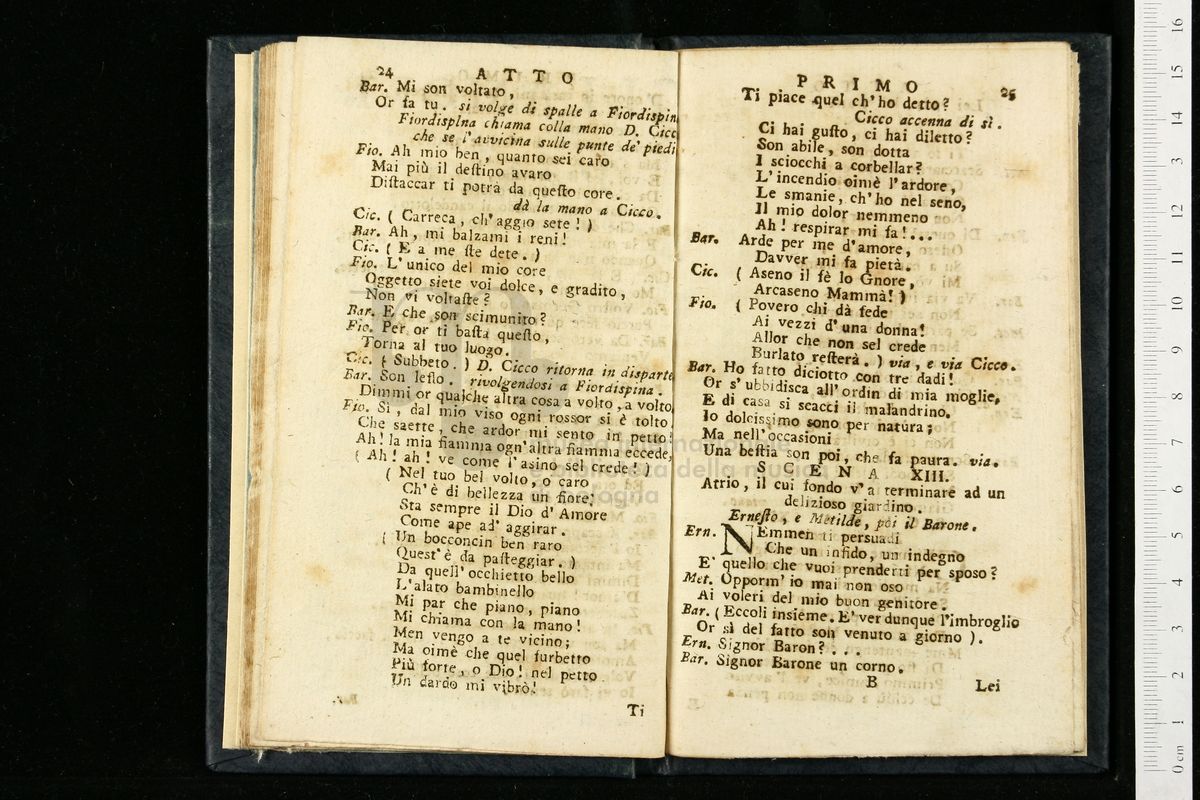 24 ATTO
Bar. Mi son voltato,
Or fa tu. si volge di spalle a Fiordispin
Fiordispina chiama colla mano D. Cicc
che se l'avvicina sulle punte de' piedi
Fio. Ah mio ben, quanto sei caro
Mai più il deſtino avaro
Diſtaccar ti potrà da queſto core.
dà la mano a Cicco.
Cic. ( Carreca, ch'aggio sete! )
Bar. Ah, mi balzami i reni!
Cic. ( E a me ſte dete. )
Fio. L'unico del mio core
Oggetto siete voi dolce, e gradito,
Non vi voltaſte?
Bar. E che son scimunito?
Fio. Per or ti baſta queſto,
Torna al tuo luogo.
Cic. ( Subbeto. ) D. Cicco ritorna in disparte
Bar. Son leſlo. rivolgendosi a Fiordispina.
Dimmi or qualche altra cosa a volto, a volto
Fio. Sì, dal mio viso ogni rossor si è tolto
Che saette, che ardor mi sento in petto!
Ah! la mia fiamma ogn'altra fiamma eccede,
( Ah! ah! ve come l'asino sel crede! )
( Nel tuo bel volto, o caro
Ch'è di bellezza un fiore;
Sta sempre il Dio d'Amore
Come ape ad' aggirar.
( Un bocconcin ben raro
Quest'è da paſteggiar. )
Da quell'occhietto bello
L'alato bambinello
Mi par che piano, piano
Mi chiama con la mano!
Men vengo a te vicino;
Ma oimè che quel furbetto
Più forte, o Dio! nel petto
Un dardo mi vibrò!
Ti
PRIMO 25
Ti piace quel ch'ho detto?
Cicco accenna di sì.
Ci hai guſto, ci hai diletto?
Son abile, son dotta
I sciocchi a corbellar?
L'incendio oimè l'ardore,
Le smanie, ch'ho nel seno,
Il mio dolor nemmeno
Ah! respirar mi fa!...
Bar. Arde per me d'amore,
Davver mi fa pietà.
Cic. ( Aseno il fè lo Gnore,
Arcaseno Mammà! )
Fio. ( Povero chi dà fede
Ai vezzi d'una donna!
Allor che non sel crede
Burlato reſterà. ) via, e via Cicco.
Bar. Ho fatto diciotto con tre dadi!
Or s'ubbidisca all'ordin di mia moglie,
E di casa si scacci il malandrino.
Io dolcissimo sono per natura;
Ma nell'occasioni
Una beſtia son poi, che fa paura. via.
SCENA XIII.
Atrio, il cui fondo v'a terminare ad un
delizioso giardino.
Erneſto, e Metilde, poi il Barone.
Ern. NEmmen ti persuadi
Che un infido, un indegno
E' quello che vuoi prenderti per sposo?
Met. Opporm' io mai non oso
Ai voleri del mio buon genitore.
Bar. ( Eccoli insieme. E' ver dunque l'imbroglio
Or sì del fatto son venuto a giorno ).
Ern. Signor Baron?...
Bar. Signor Barone un corno.
B Lei
0 cm 1 2 3 4 5 6 7 8 9 10 11 12 13 14 15 16